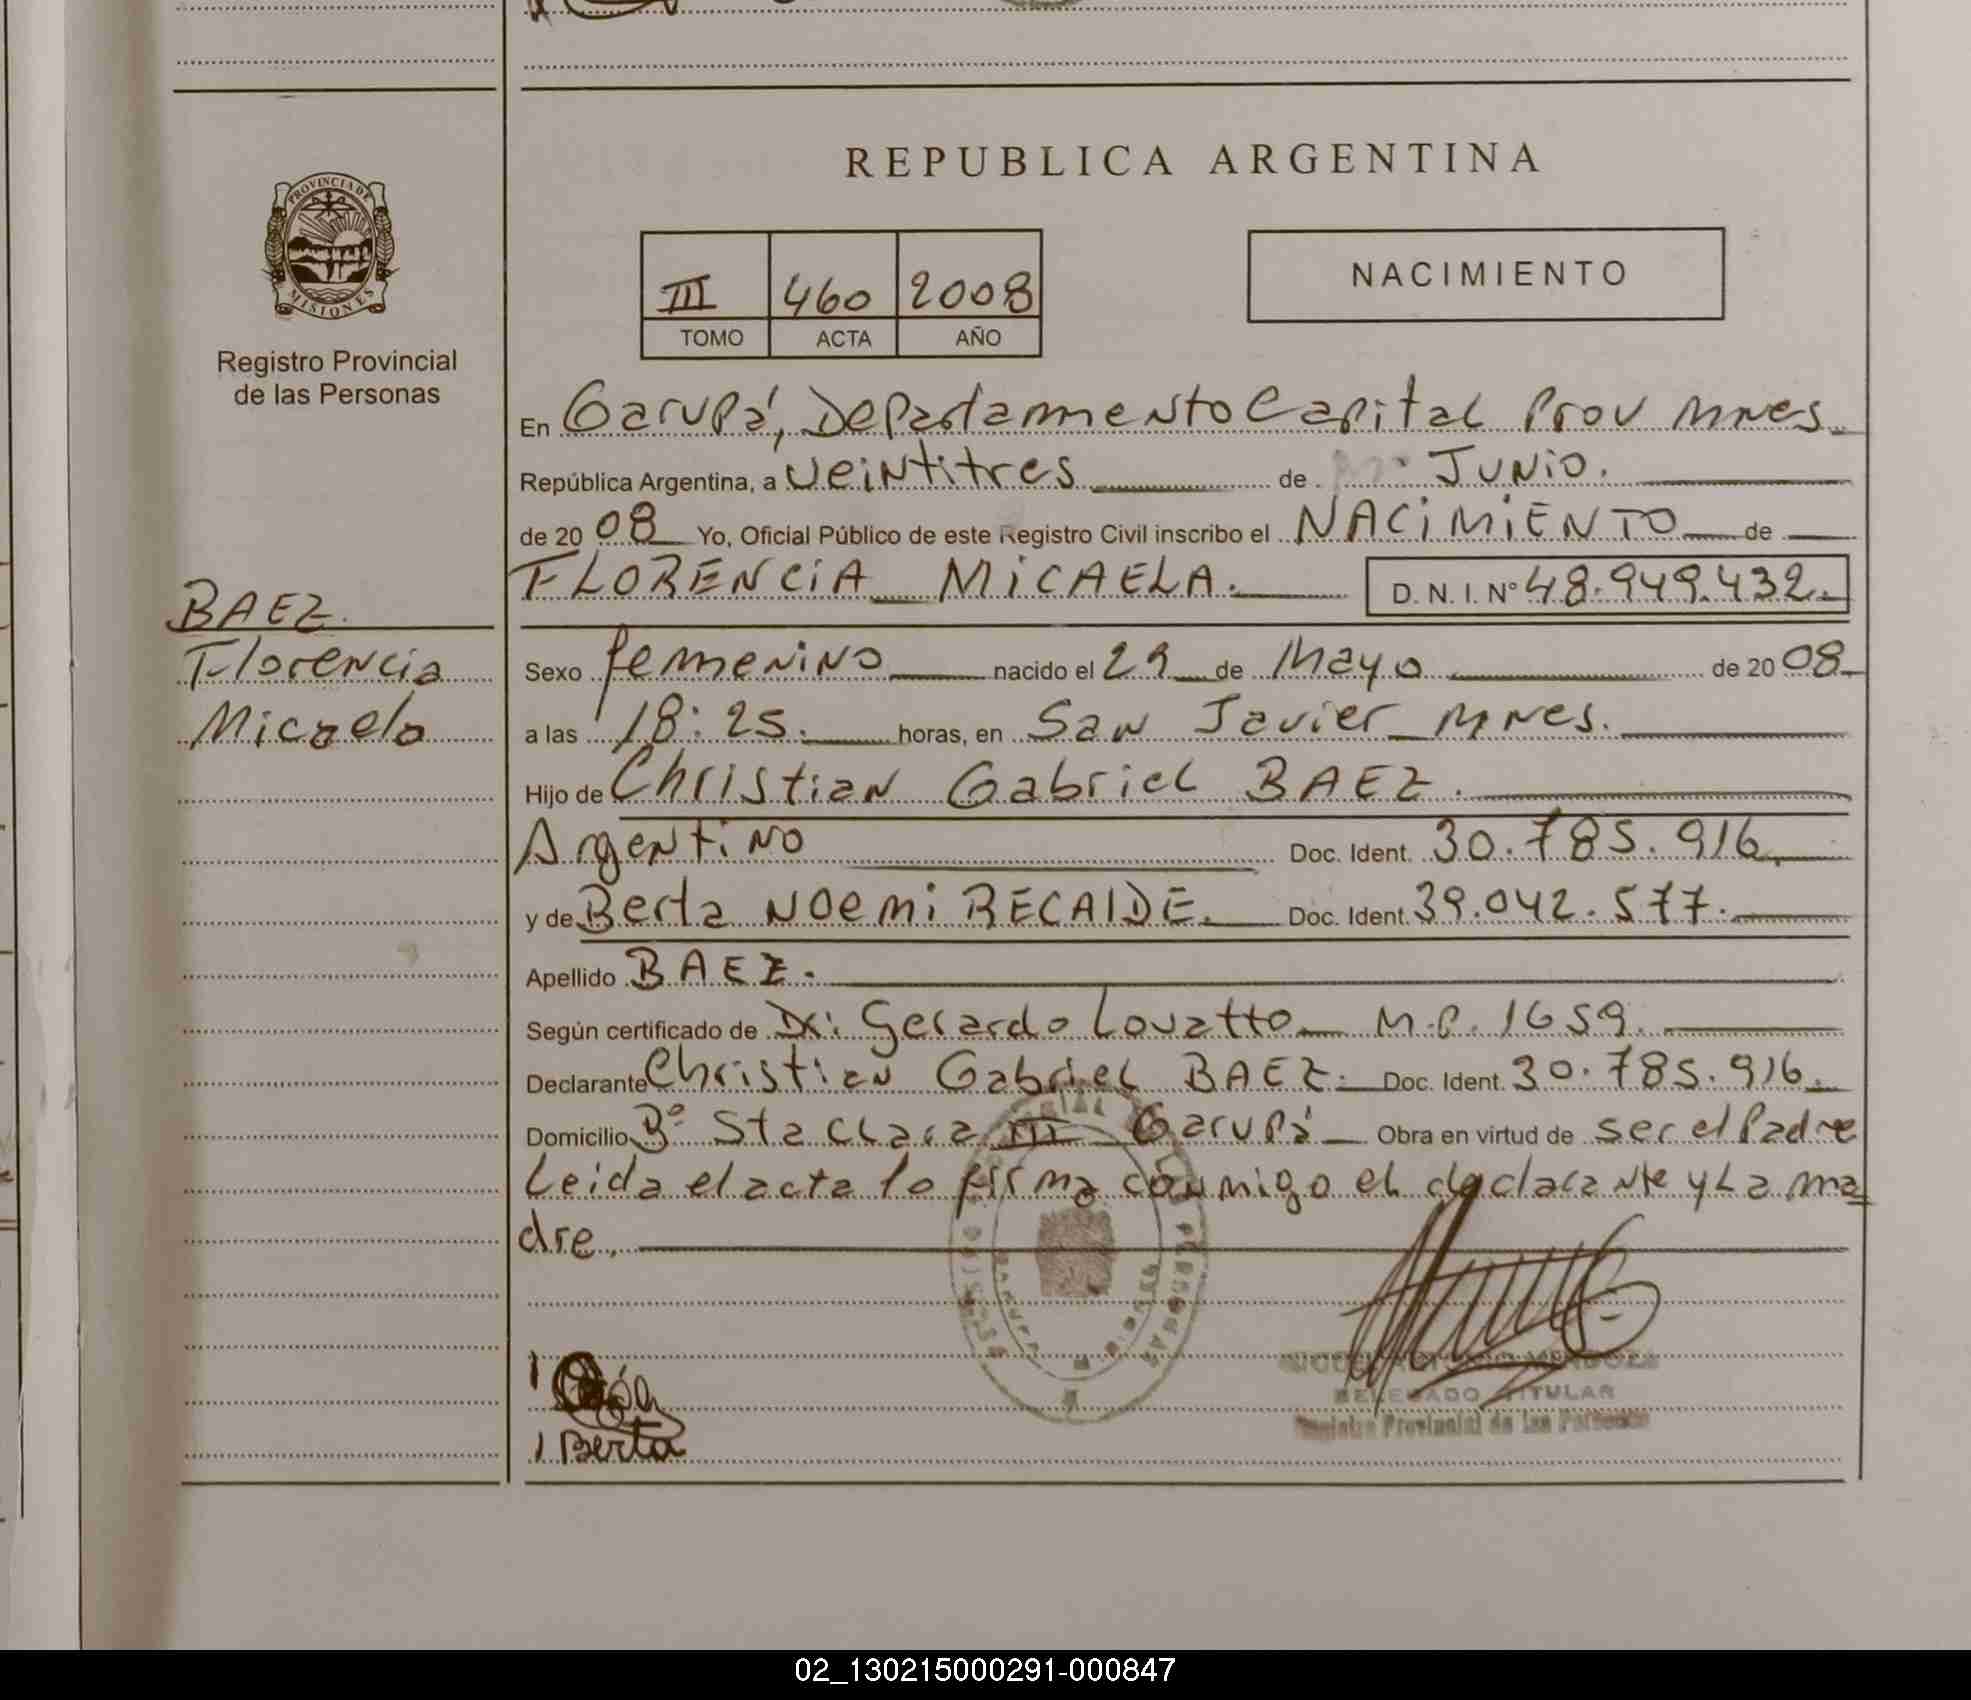 PROVINCIA DE
MISIONES
Registro Provincial
de las Personas
BAEZ.
Florencia
Micaela
REPUBLICA ARGENTINA
III 460 2008
TOMO ACTA AÑO
NACIMIENTO
En Garupá, Departamento Capital Prov Mnes.
República Argentina, a veintitres de Junio.
de 20 08 Yo, Oficial Público de este Registro Civil inscribo el NACIMIENTO de
FLORENCIA MICAELA. D. N. I. Nº 48.949.432.
Sexo femenino nacido el 29 de Mayo de 20 08
a las 18:25. horas, en San Javier Mnes.
Hijo de Christian Gabriel BAEZ.
Argentino Doc. Ident. 30.785.916.
y de Berta Noemi RECALDE. Doc. Ident. 39.042.577.
Apellido BAEZ.
Según certificado de Dr: Gerardo Lovatto M.P. 1659.
Declarante Christian Gabriel BAEZ. Doc. Ident. 30.785.916.
Domicilio Bº Sta Clara III Garupá Obra en virtud de ser el Padre
Leida el acta lo firma conmigo el declarante y La ma
dre.
DELEGADO TITULAR
Registro Provincial de las Personas
Berta
02_130215000291-000847